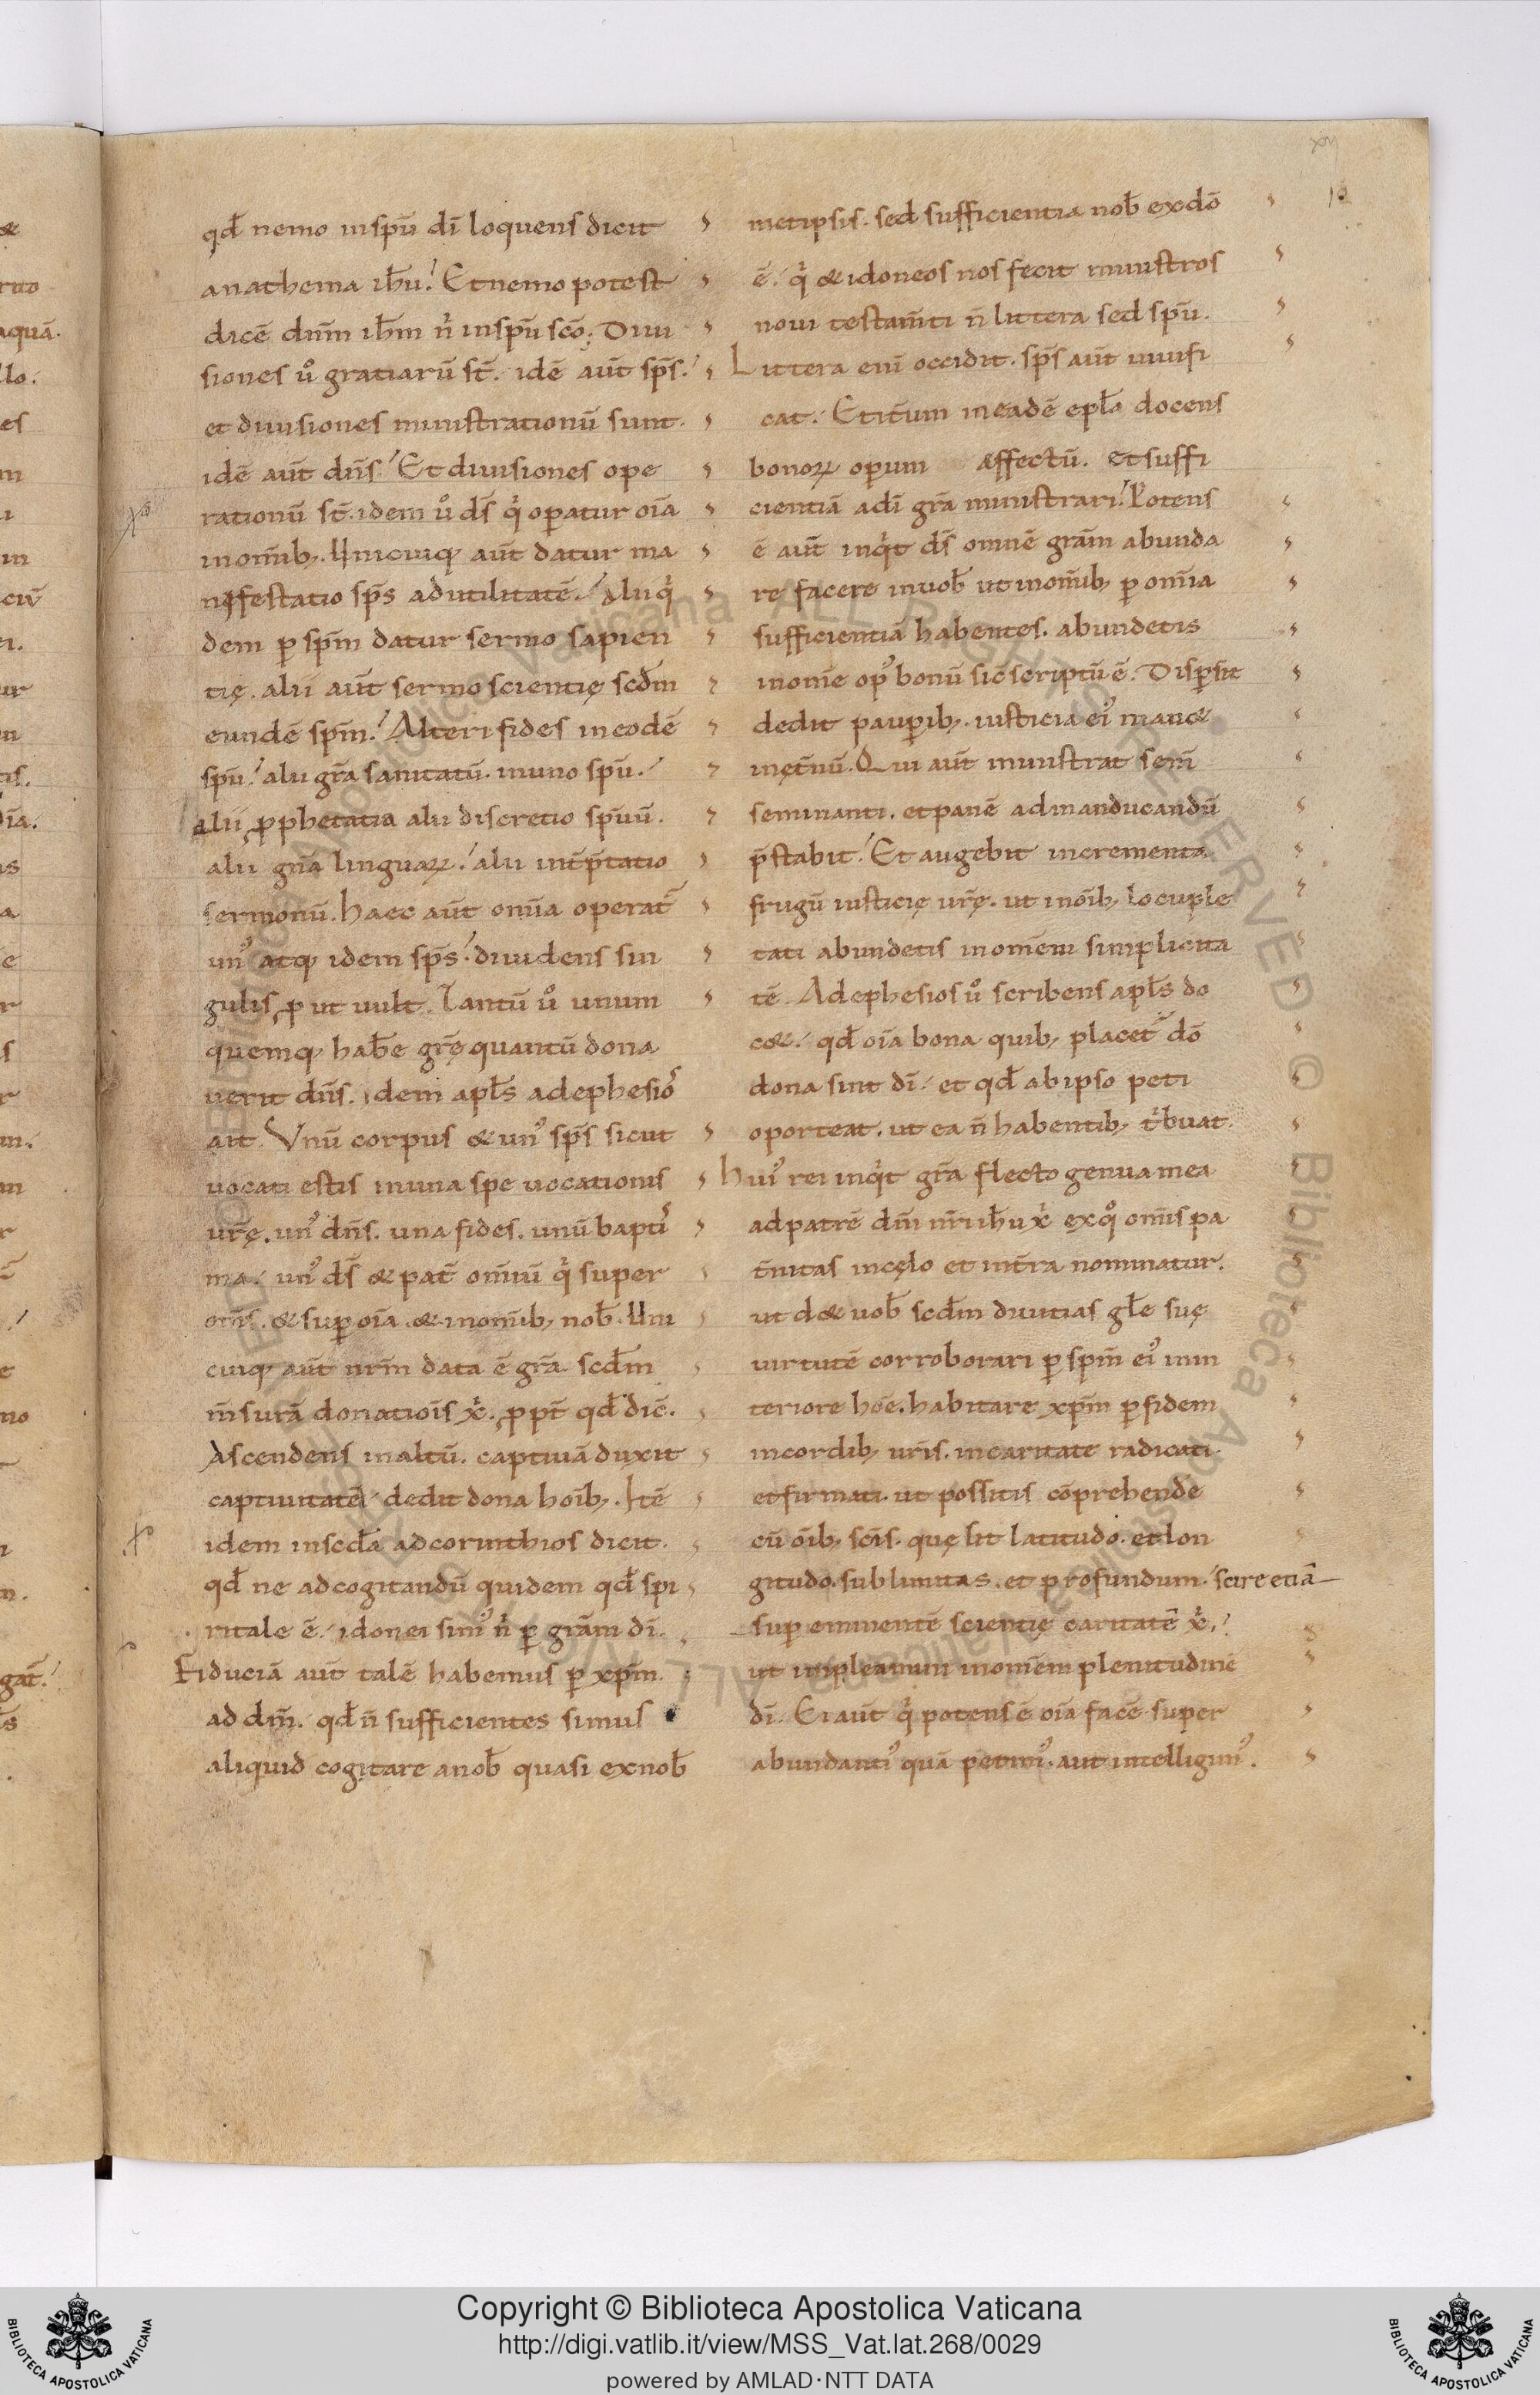 qd̄ nemo inspū dī loquens dicit
anathema ih̄u. Et nemo potest
dicē dnm̄ ih̄m nͥ inspū sc̄o. Diui
siones uͦ gratiarū st̄. idē aūt sp̄s.
et diuisiones ministrationū sunt.
idē aūt dn̄s. Et diuisiones ope
rationū st̄. idem uͦ d̄s qͥ operatur oīa
inomīb;. Unicuiq; aūt datur ma
nifestatio sp̄s adutilitatē. Alii qͥ
dem ꝑ spm̄ datur sermo sapien
tię. alii aūt sermo scientię scd̄m
eundē spm̄. Alteri fides ineodē
spū. alii gr̄a sanitatū. inuno spū.
alii ꝓphetatia alii discretio spūū.
alii gn̄a linguaꝝ. alii int̄p̄tatio
sermonū. haec aūt omīa operat̄
unꝰ atq; idem sp̄s. diuidens sin
gulis ꝓut uult. Tantū uͦ unum
quemq; hab̄e gr̄ę quantū dona
uerit dn̄s. idem apl̄s adephesioˢ
ait. Unū corpus & unꝰ sp̄s sicut
uocati estis inuna spe uocationis
ur̄ę. unꝰ dn̄s. una fides. unū baptiˢ
ma. unꝰ d̄s & pat̄ omīū qͥ super
om̄s. & suꝑ oīa. & inomīb; nob̄. Uni
cuiq; aūt nrm̄ data ē gr̄a scd̄m
m̄surā donatiōis xͥ. ꝓpt̄ qd̄ dic̄.
Ascendens inaltū. captiuā duxit
captiuitatē dedit dona hoīb;. Itē
idem inscd̄a adcorinthios dicit.
qd̄ ne adcogitandū quidem qd̄ spi
ritale ē. idonei simꝰ nͥ ꝑ grām dī.
Fiduciā aūt talē habemus ꝑ xpm̄.
ad dm̄. qd̄ n̄ sufficientes simus
aliquid cogitare anob̄ quasi exnob̄
metipsis. sed sufficientia nob̄ exdō
ē. qͥ & idoneos nos fecit ministros
noui testam̄ti n̄ littera sed spū.
Littera enī occidit. sp̄s aūt uiuifi
cat. Et it̄um ineadē epl̄a docens
bonoꝝ oꝑum affectū. et suffi
cientiā adī gr̄a ministrari. Potens
ē aūt inqͥt d̄s omnē grām abunda
re facere inuob̄ ut inomīb; ꝑ omīa
sufficientiā habentes. abundetis
inomē opꝰ bonū sic̄ scriptū ē. Disꝑsit
dedit pauꝑib;. iusticia eiꝰ man&
inęt̄nū. Qui aūt ministrat sem̄
seminanti. et panē admanducandū
p̄stabit. Et augebit incrementa
frugū iusticię ur̄ę. ut inoīb; locuple
tati abundetis inomēm simplicita
tē. Adephesios uͦ scribens apl̄s do
c&. qd̄ oīa bona quib; placet̄ dō
dona sint dī. et qd̄ abipso peti
oporteat. ut ea n̄ habentib; tͥbuat.
huiꝰ rei inqͥt gr̄a flecto genua mea
adpatrē dnī nrī ih̄u xͥ exqͦ omīs pa
t̄nitas incęlo et int̄ra nominatur.
ut d& uob̄ scd̄m diuitias gl̄e suę
uirtutē corroborari ꝑ spm̄ eiꝰ inin
teriore hoē. habitare xpm̄ ꝑ fidem
incordib; urīs. incaritate radicati
et firmati. ut possitis cōprehendē
cū oīb; scīs. quę sit latitudo. et lon
gitudo. sublimitas. et profundum. scire etiā
suꝑ eminentē scientię caritatē xͥ.
ut impleamini inomēm plenitudinē
dī. Ei aūt qͥ potens ē oīa facē super
abundantiꝰ quā petimꝰ. aut intelligimꝰ.
Copyright © Biblioteca Apostolica Vaticana
http://digi.vatlib.it/view/MSS_Vat.lat.268/0029
powered by AMLAD·NTT DATA
BIBLIOTECA APOSTOLICA VATICANA
BIBLIOTECA APOSTOLICA VATICANA